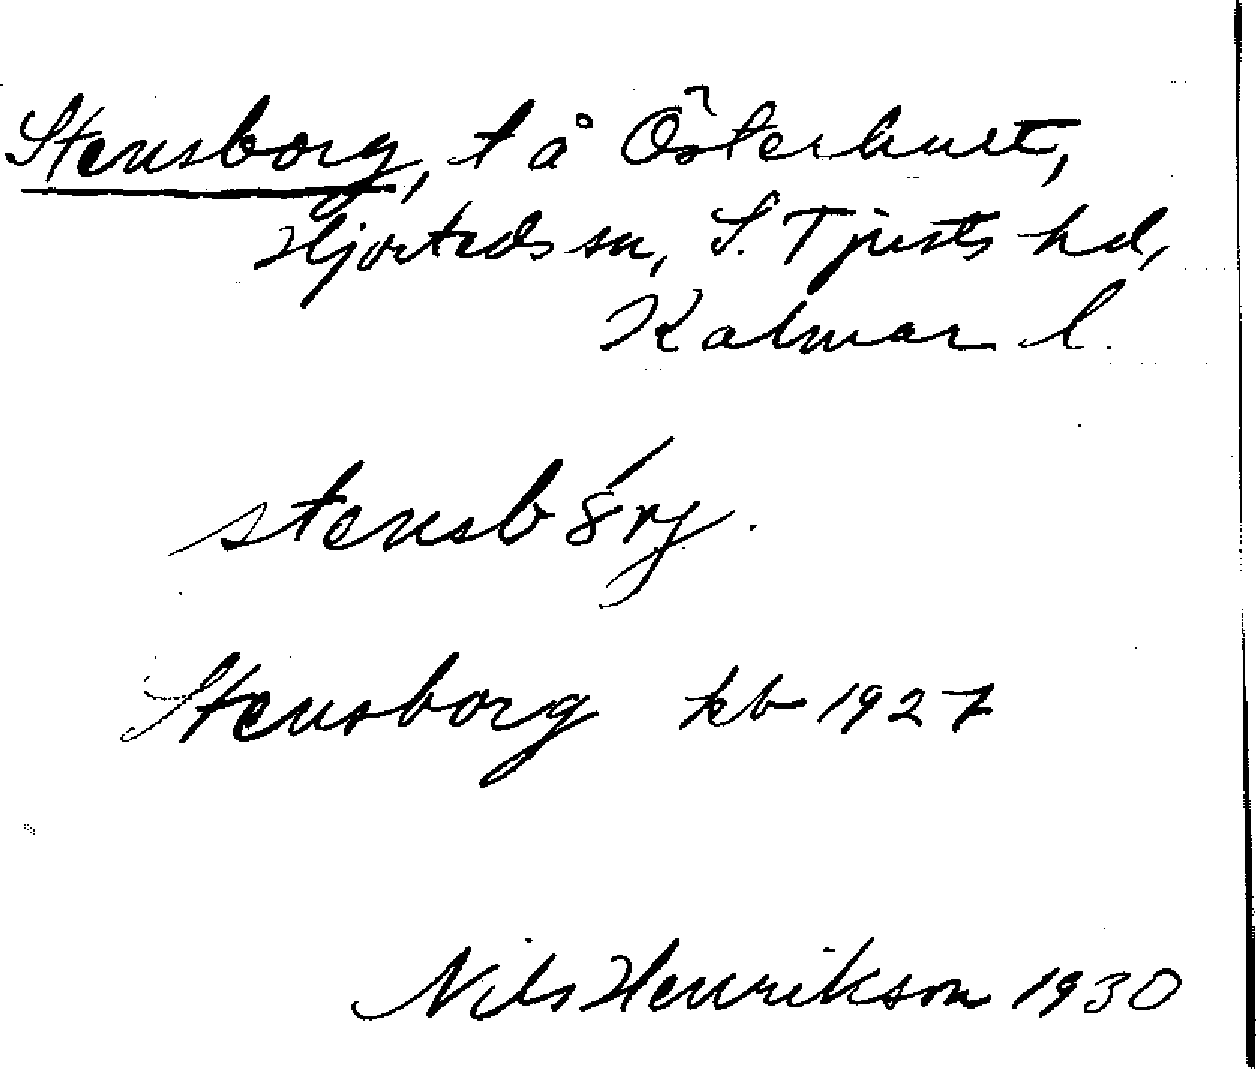 Stensborg, t å Österhult,
Hjorteds sn, S. Tjusts hd,
Kalmar l.
Stensborg kb 1927
Nils Henrikson 1930